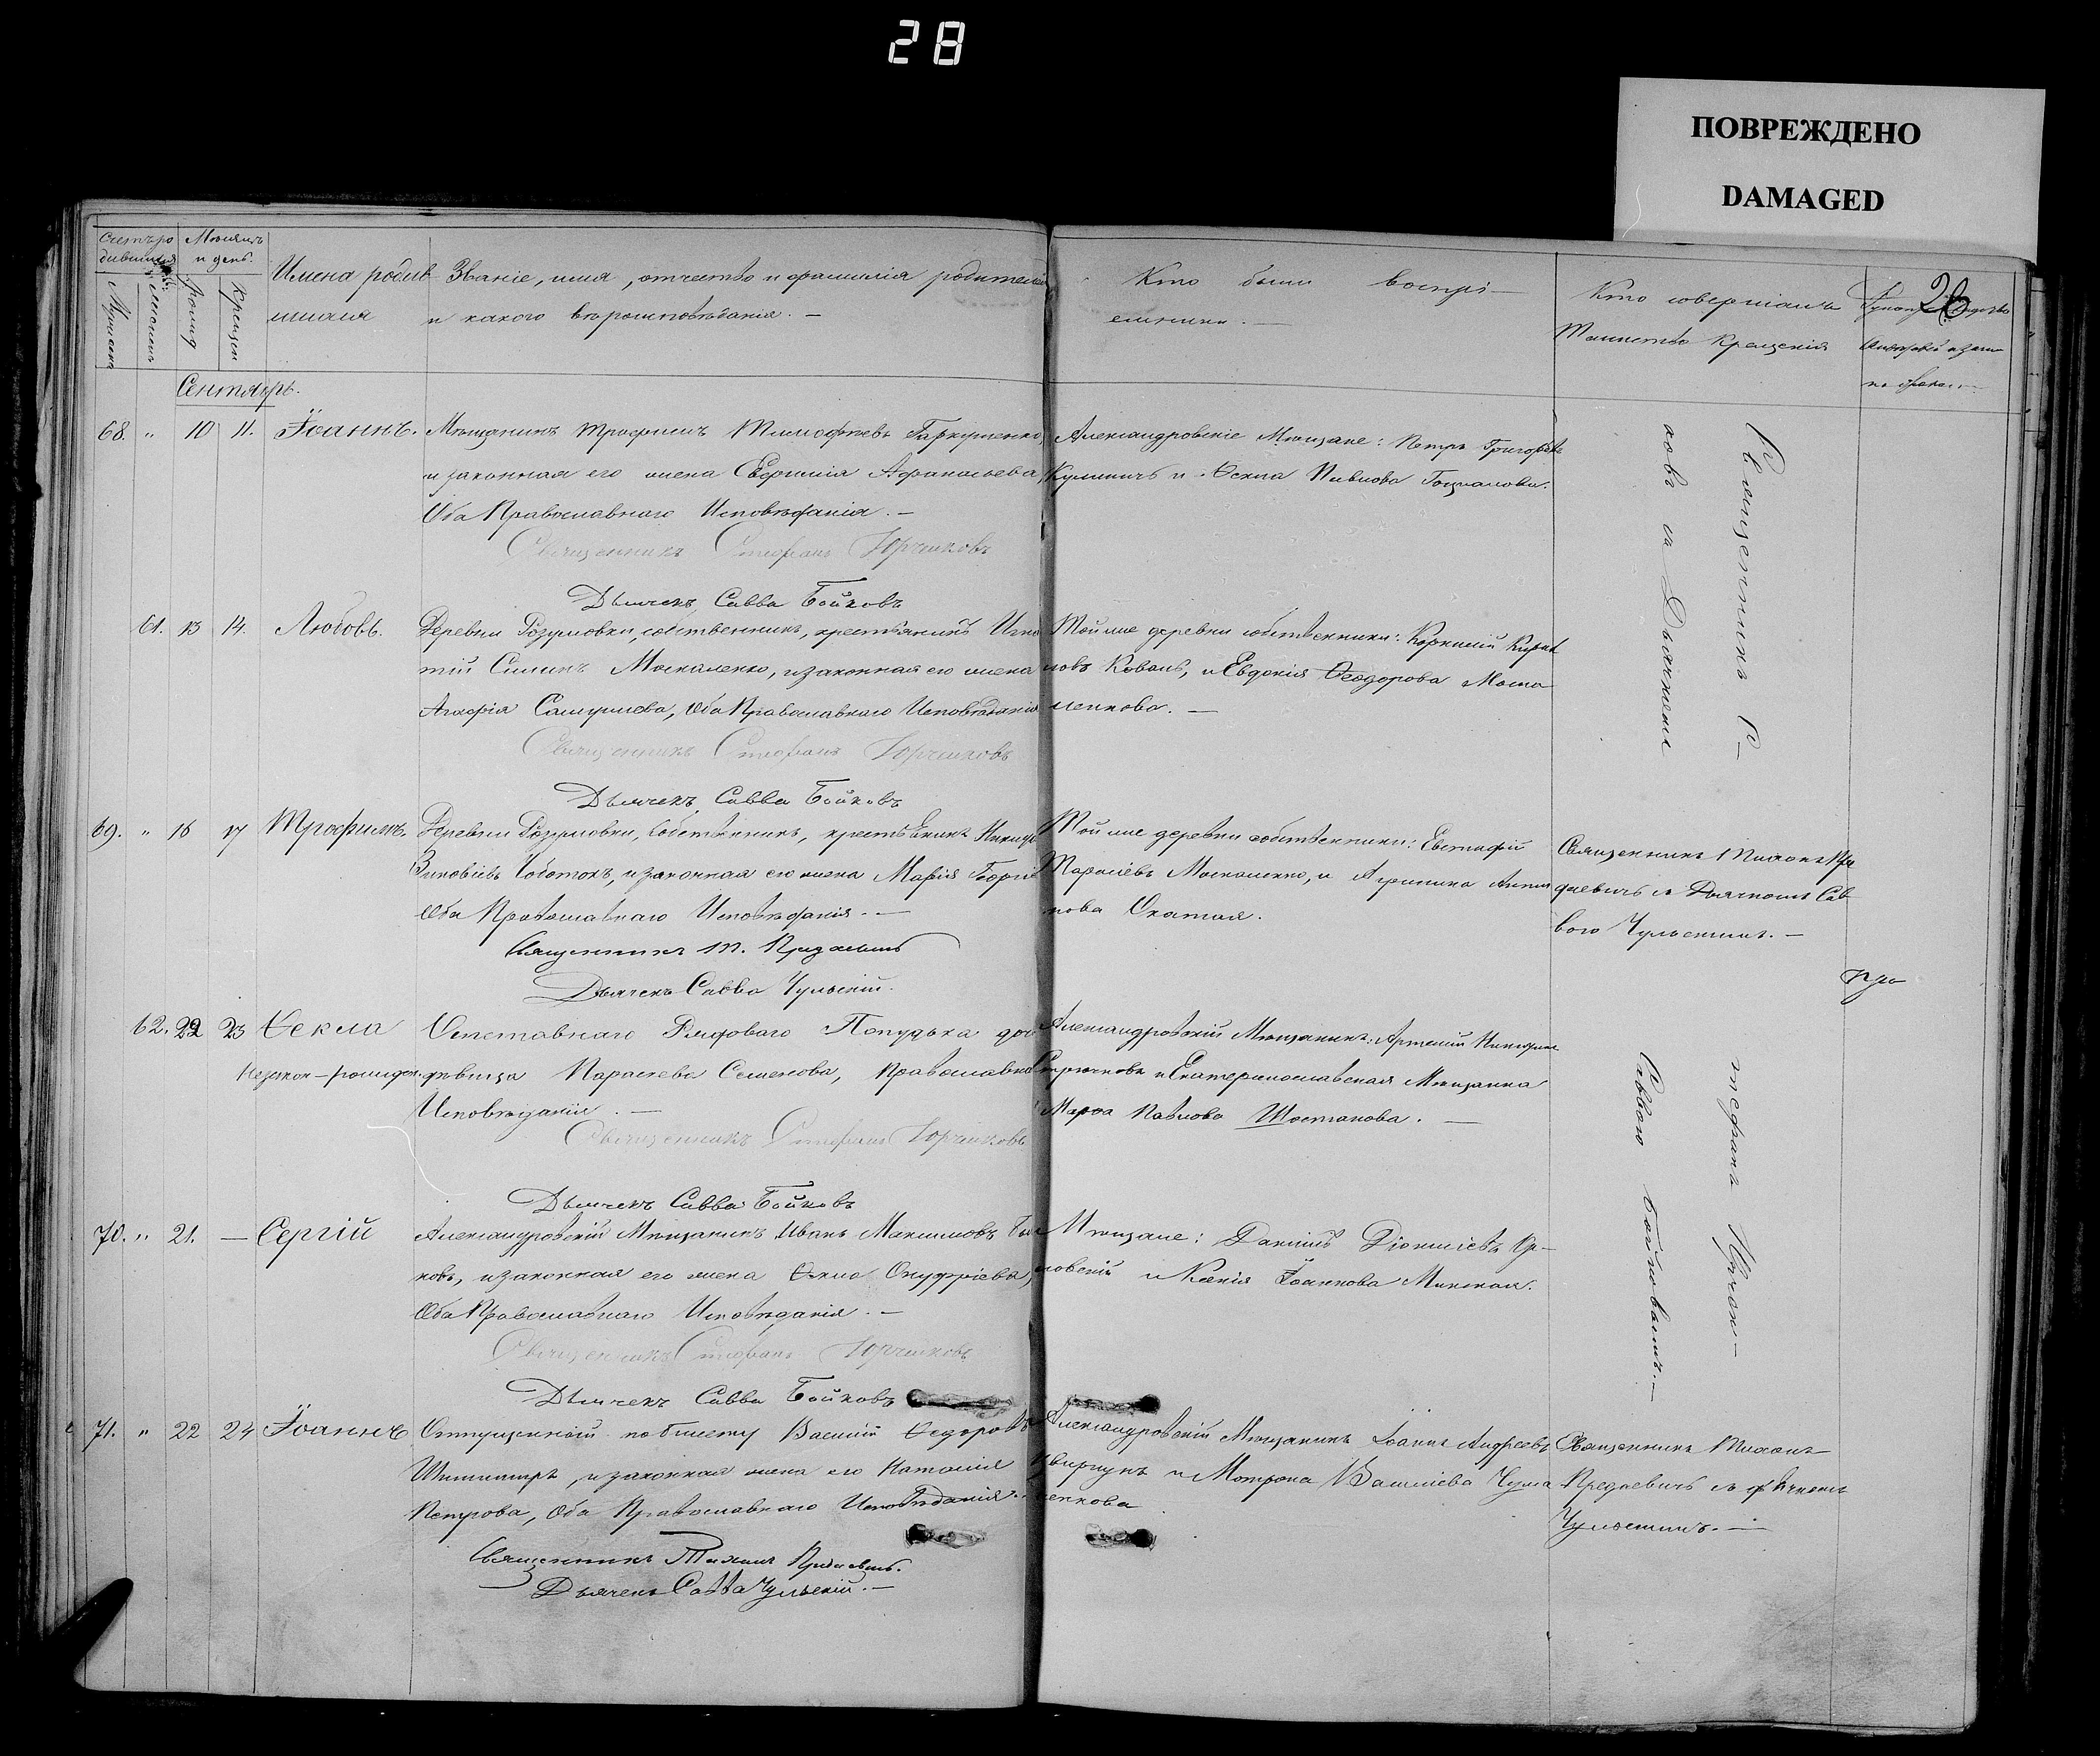 28
ПОВРЕЖДЕНО
DAMAGED
26
Счетъ ро
дившихся
Мѣсяцъ
и день.
Мужеска
Женска
Рожд
Крещен
Имена родив
шихся
Званіе, имя, отчество и фамилія родителей
и какого вѣроисповѣданія. —
Кто были воспрі-
емники. —
Кто совершалъ
Таинство Крещенія
Сентябрь.
68. " 10 11. Іоаннъ.
Мѣщанинъ Трофимъ Тимофѣевъ Гаркушенко,
и законная его жена Евфимія Афанасьева,
Оба Православнаго Исповѣданія. —
Священникъ Стефанъ Юрченковъ
Дьячекъ Савва Бойковъ
Александровскіе Мѣщане: Петръ Григорьевъ
и Ѳекла Павлова
61. 13 14. Любовь.
Деревни Розумовки, собственникъ, крестьянинъ Игна
тій Силинъ Москаленко, и законная его жена
Агафія Самуилова, Оба Православнаго Исповѣданія
Священникъ Стефанъ Юрченковъ
Дьячекъ Савва Бойковъ
Той же деревни собственники: Корнилій Кирил
ловъ Коваль, и Евдокія Ѳеодорова Моска
ленкова. —
69. " 16 17 Трофимъ.
Деревни Розумовки, собственникъ, крестьянинъ
Зиновіевъ Чоботокъ, и законная его жена Марія Георгіе
Оба Православнаго Исповѣданія. —
Священникъ Т. Предаевичъ
Дьячекъ Савва Чульскій.
Той же деревни собственники: Евстафій
Тарасіевъ Москаленко, и Агрипина Антил
нова Охатая.
Священникъ Тихонъ Пре
даевичъ съ Дьячкомъ Сав
вою Чульскимъ. —
62. 22 23 Ѳекла
Незакон-рожден.
Отставнаго Рядоваго дочь
дѣвица Параскева Семенова, Православнаго
Исповѣданія. —
Священникъ Стефанъ Юрченковъ
Дьячекъ Савва Бойковъ
Александровскій Мѣщанинъ: Артемій
и Екатеринославская Мѣщанка
Марѳа Павлова Шостакова. —
70. " 21. — Сергій
Александровскій Мѣщанинъ Иванъ Максимовъ
ковъ, и законная его жена Ѳекла Онуфріева,
Оба Православнаго Исповѣданія. —
Священникъ Стефанъ Юрченковъ
Дьячекъ Савва Бойковъ
Мѣщане: Даніилъ Діонисіевъ
ловскій и Ксенія Іоаннова Минская.
71. " 22 24 Іоаннъ
Отпущенный по билету Василій Ѳедоровъ
и законная жена его Наталія
Петрова, Оба Православнаго Исповѣданія. —
Священникъ Тихонъ Предаевичъ.
Дьячекъ Савва Чульскій. —
Александровскій Мѣщанинъ Іоаннъ Андреевъ
Цвиркунъ и Мотрона Василіева Чума
ченкова
Священникъ Тихонъ
Предаевичъ съ дьячкомъ
Чульскимъ. —
Священникъ С-
тефанъ Юрчен-
ковъ съ Дьячкомъ
Саввою Бойковымъ. —